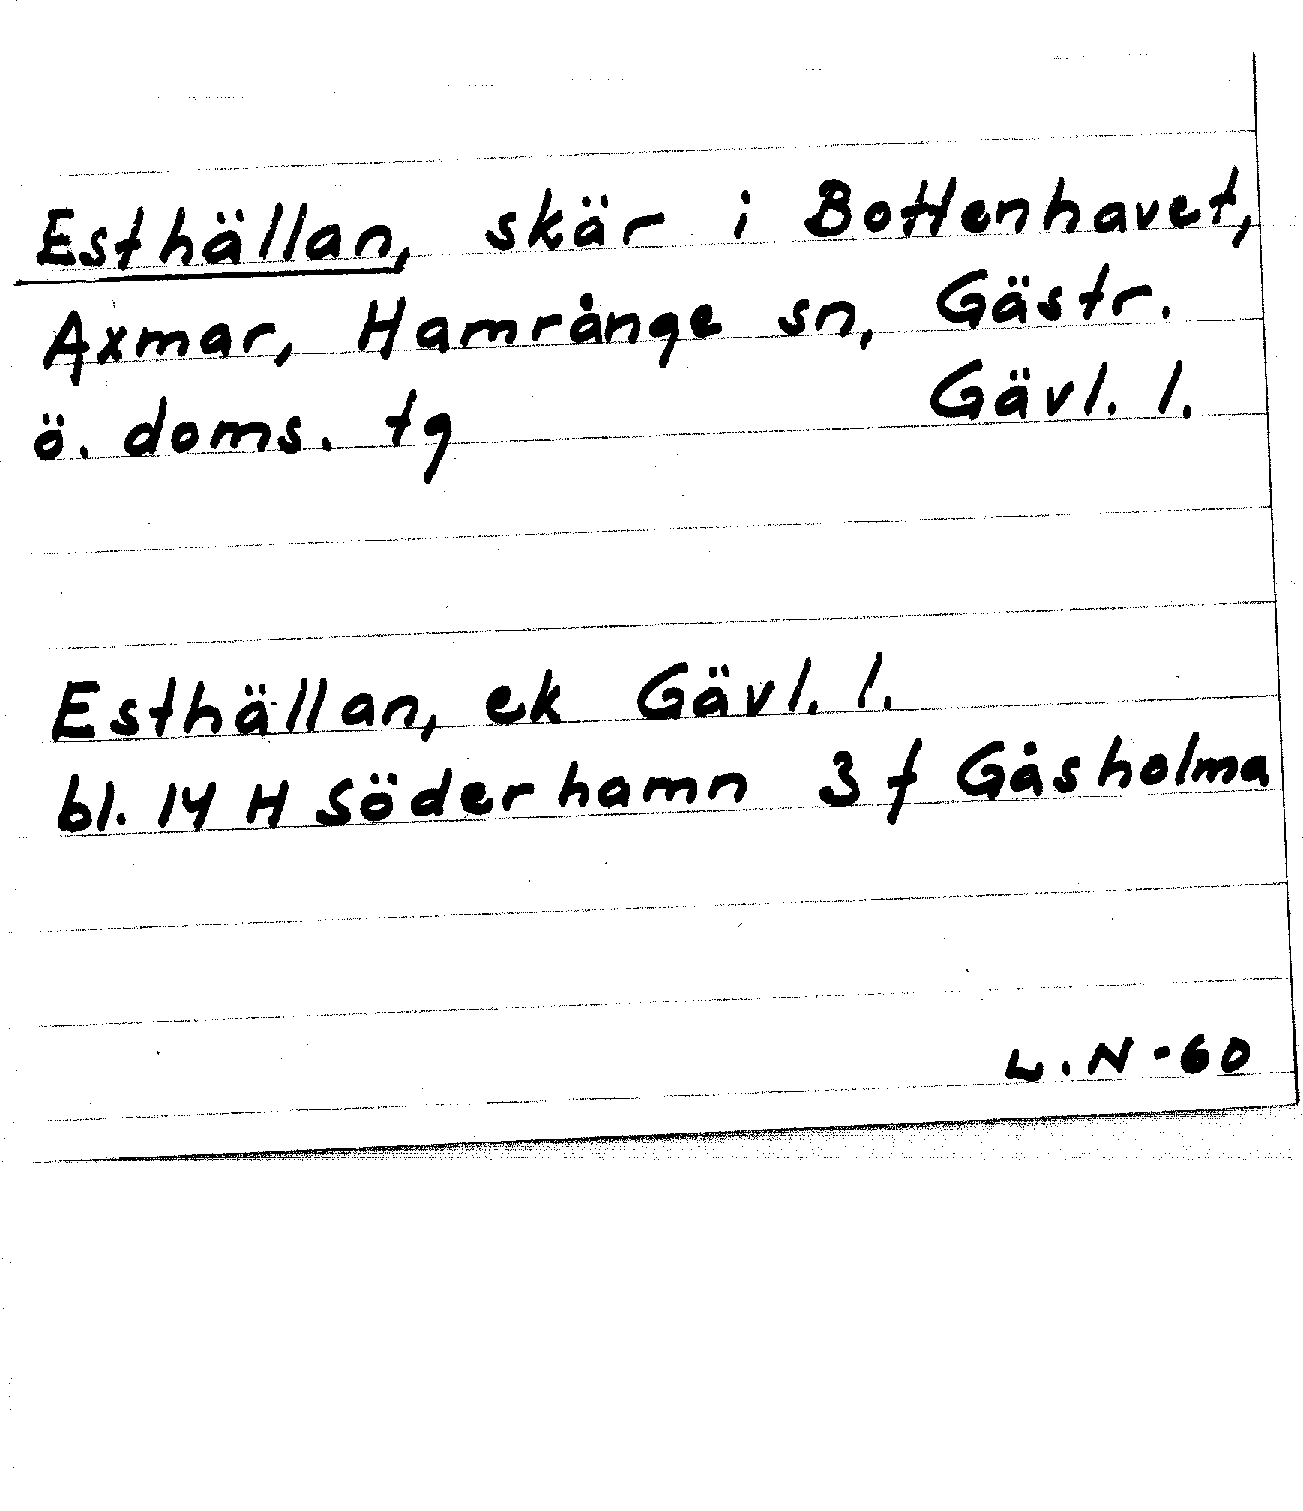 Esthällan, skär i Bottenhavet,
Axmar, Hamrånge sn, Gästr.
ö. doms. tg Gävl. l.
Esthällan, ek Gävl. l.
bl. 14 H Söderhamn 3 f Gåsholma
L.N-60